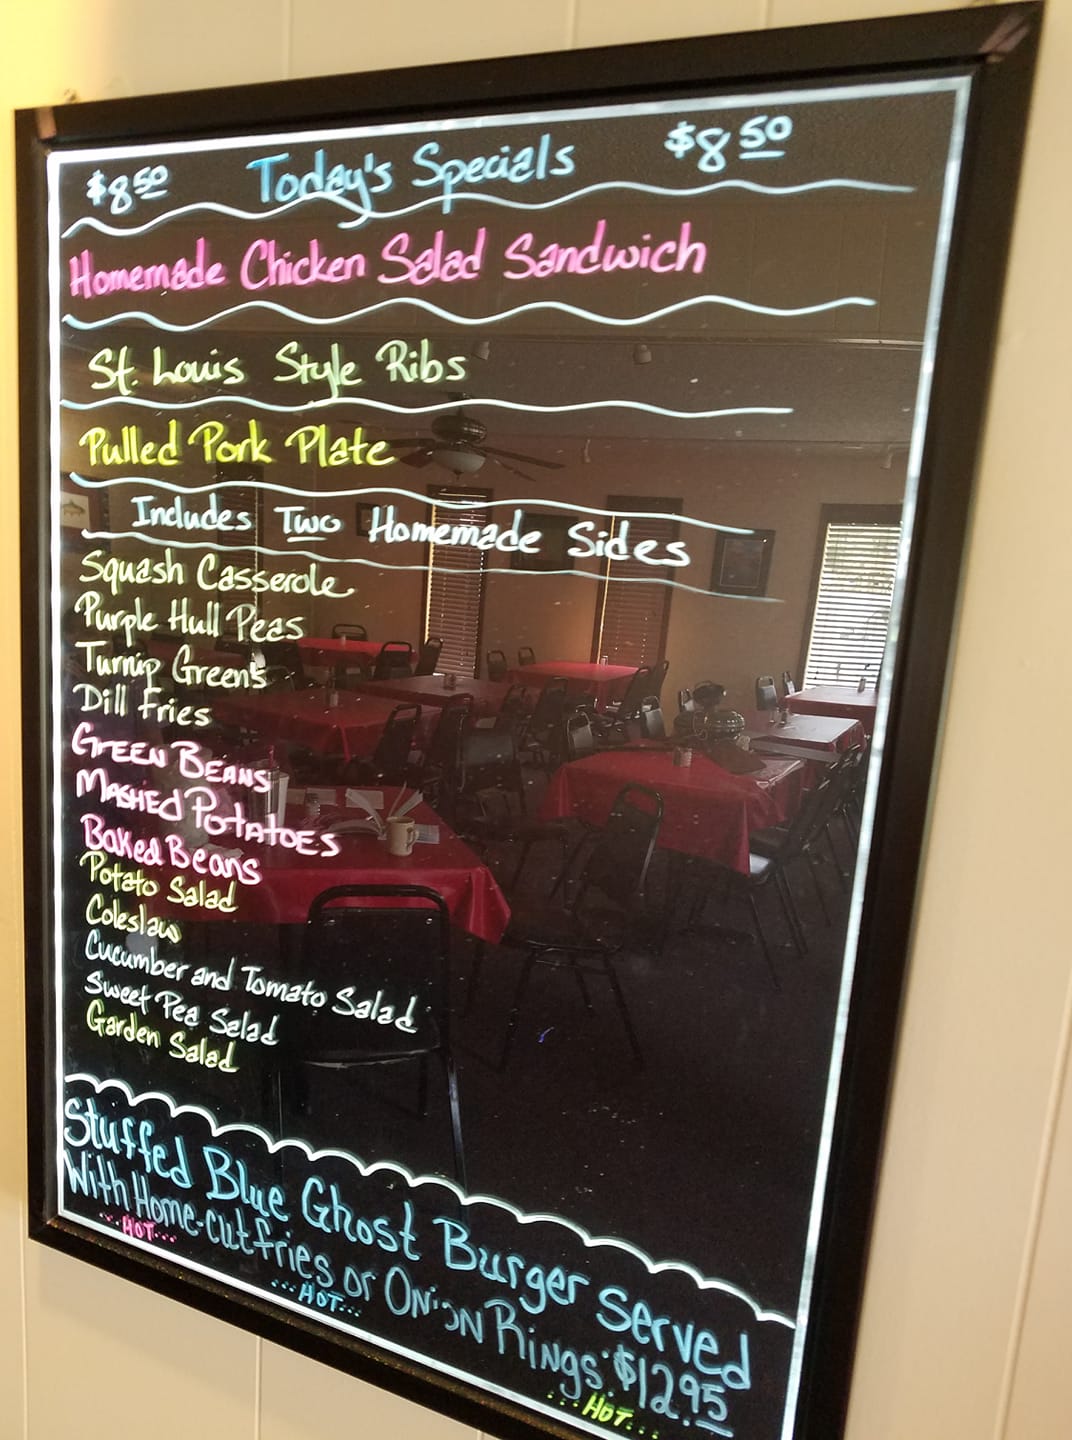 $8.50 Today's Specials $8.50
Homemade Chicken Salad Sandwich
St. Louis Style Ribs
Pulled Pork Plate
Includes Two Homemade Sides
Squash Casserole
Purple Hull Peas
Turnip Green's
Dill Fries
GREEN BEANS
MASHED POTATOES
Baked Beans
Potato Salad
Coleslaw
Cucumber and Tomato Salad
Sweet Pea Salad
Garden Salad
Stuffed Blue Ghost Burger served
With Home-cut fries or Onion Rings: $12.95
...HOT...
...HOT...
...HOT...